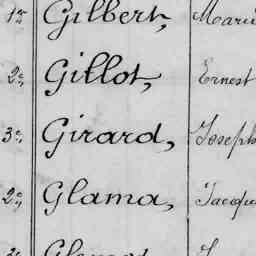 1re Gilbert, Marie
2e, Gillot, Ernest
3e, Girard, Joseph
2e, Glama, Jacqu